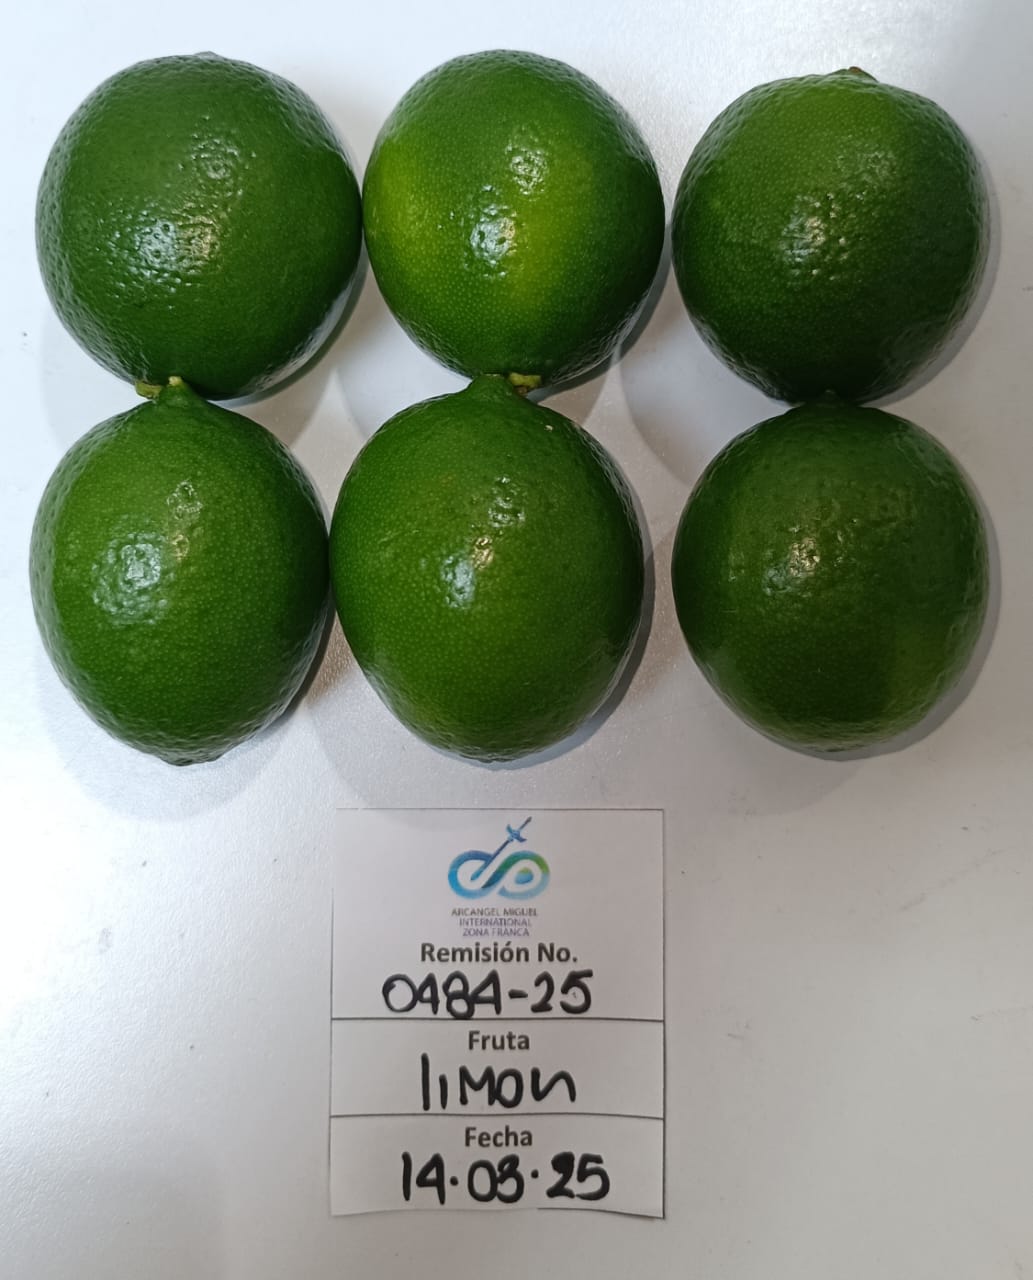 ARCANGEL MIGUEL
INTERNATIONAL
ZONA FRANCA
Remisión No.
0484-25
Fruta
limon
Fecha
14.03.25